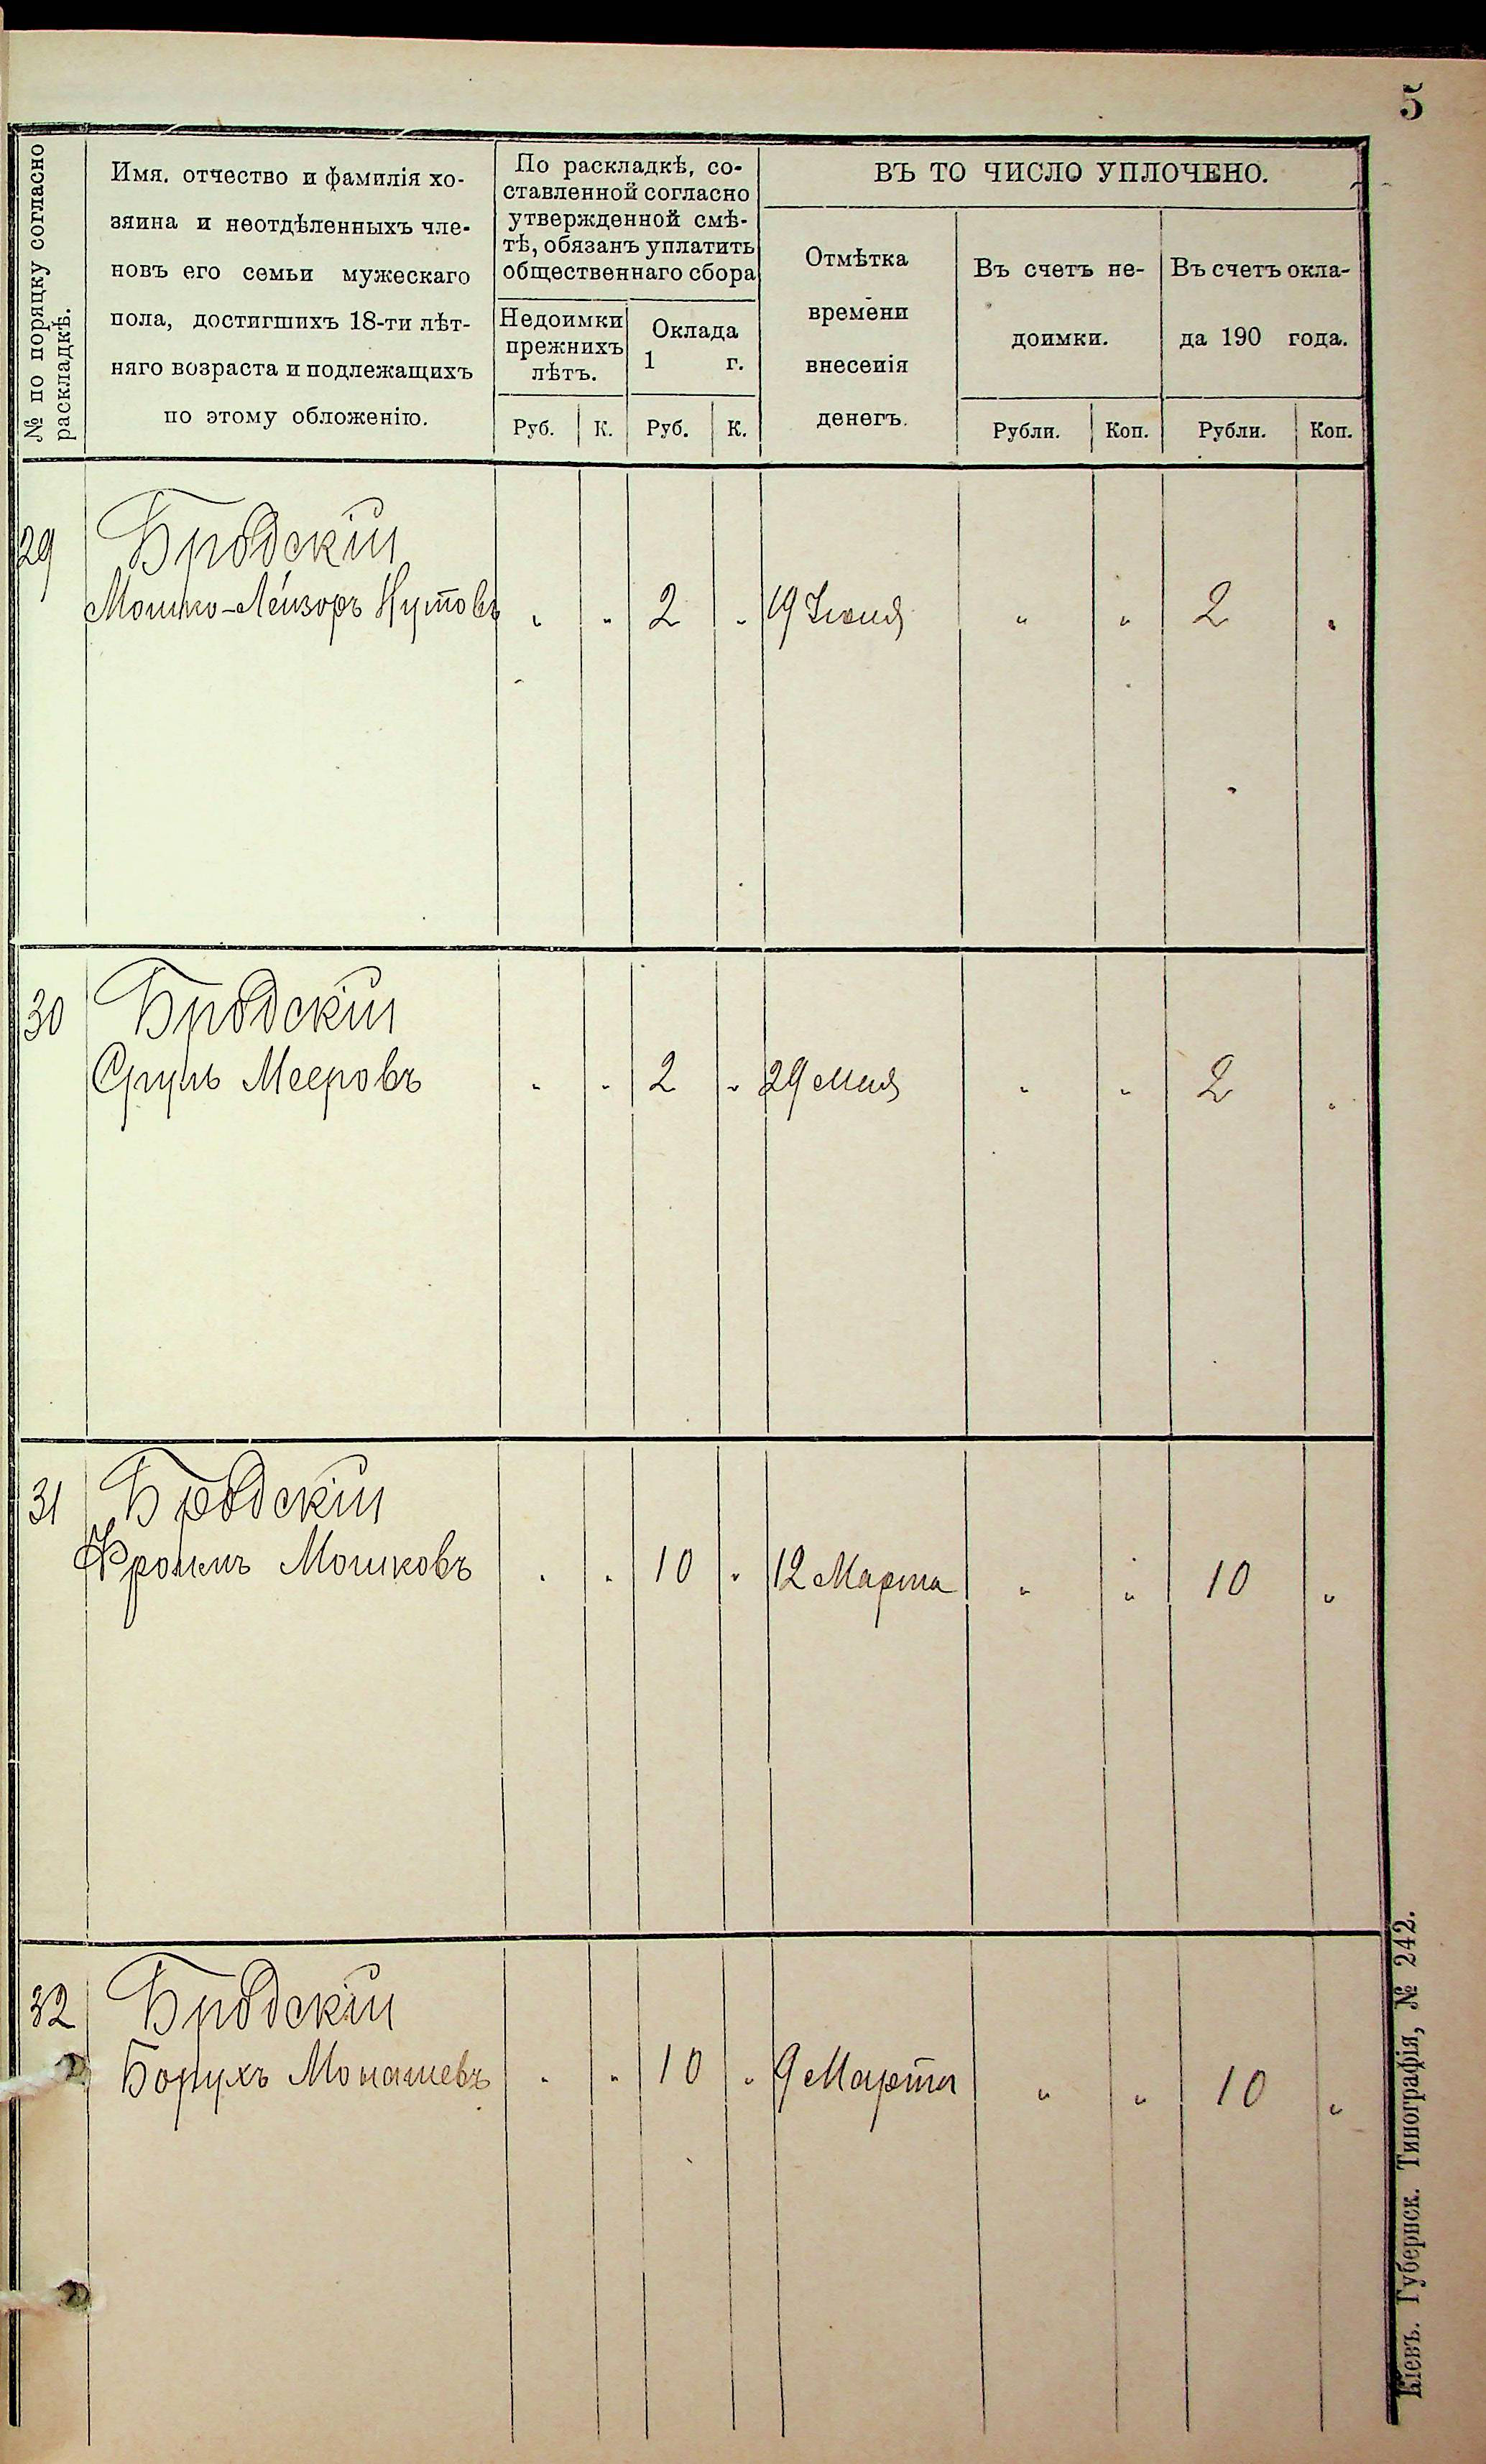 5
№ по поряцку согласно
раскладкѣ.
Имя. отчество и фамилія хо-
зяина и неотдѣленныхъ чле-
новъ его семьи мужескаго
пола, достигшихъ 18-ти лѣт-
няго возраста и подлежащихъ
по этому обложенію.
По раскладкѣ, со-
ставленной согласно
утвержденной смѣ-
тѣ, обязанъ уплатить
общественнаго сбора
Недоимки
прежнихъ
лѣтъ.
Оклада
1 г.
ВЪ ТО ЧИСЛО УПЛОЧЕНО.
Отмѣтка
времени
внесенія
денегъ.
Въ счетъ не-
доимки.
Въ счетъ окла-
да 190 года.
Руб. К. Руб. К. Рубли. Коп. Рубли. Коп.
29 Бродскій
Мошко-Лейзоръ Нутовъ " " 2 " 19 Іюня " " 2 "
30 Бродскій
Сруль Мееровъ " " 2 " 29 Мая " " 2 "
31 Бродскій
Фроимъ Мошковъ " " 10 " 12 Марта " " 10 "
32 Бродскій
Борухъ Монашевъ " " 10 " 9 Марта " " 10 "
Кіевъ. Губернск. Типографія, № 242.